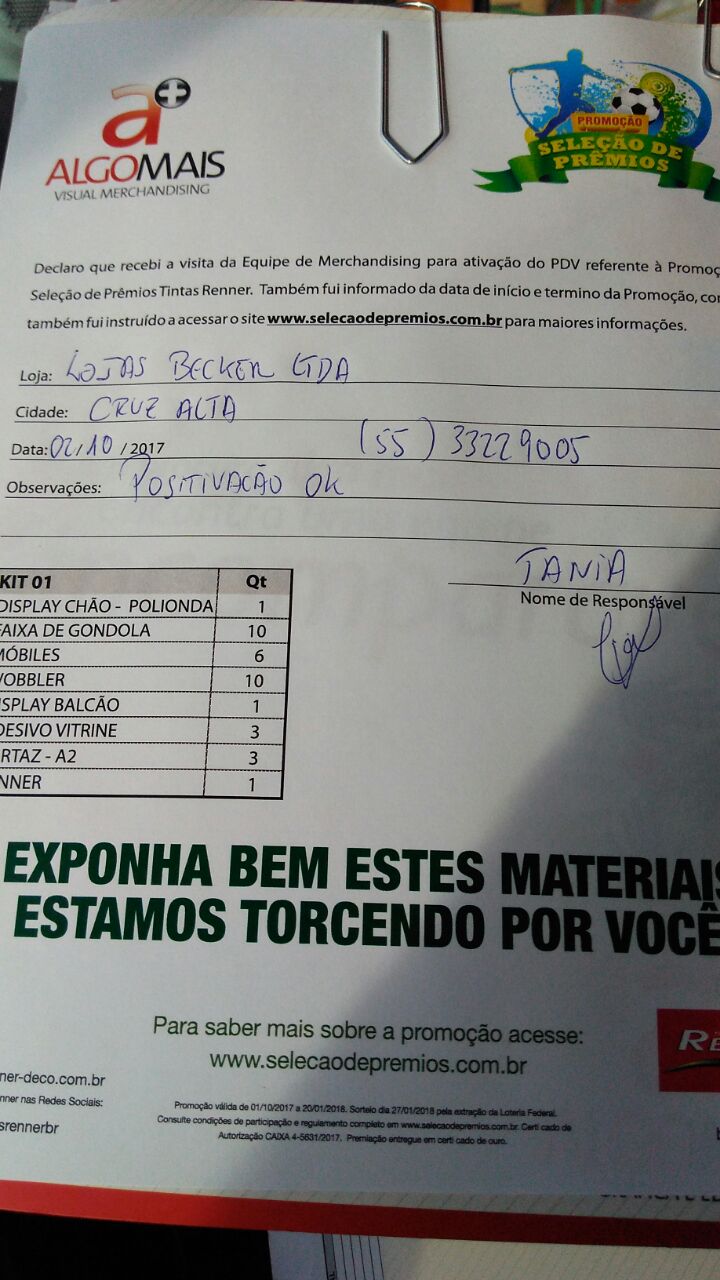 a+
ALGOMAIS
VISUAL MERCHANDISING
PROMOÇÃO
SELEÇÃO DE
PRÊMIOS
Declaro que recebi a visita da Equipe de Merchandising para ativação do PDV referente à Promoç
Seleção de Prêmios Tintas Renner. Também fui informado da data de início e termino da Promoção, co
também fui instruído a acessar o site www.selecaodepremios.com.br para maiores informações.
Loja: LOJAS BECKER LTDA
Cidade: CRUZ ALTA
Data: 02/10/2017 (55) 33229005
Observações: POSITIVACÃO OK
TANIA
Nome de Responsável
KIT 01 Qt
DISPLAY CHÃO - POLIONDA 1
FAIXA DE GONDOLA 10
MÓBILES 6
WOBBLER 10
ISPLAY BALCÃO 1
DESIVO VITRINE 3
RTAZ - A2 3
NNER 1
EXPONHA BEM ESTES MATERIAIS
ESTAMOS TORCENDO POR VOCÊ
Para saber mais sobre a promoção acesse:
www.selecaodepremios.com.br
ner-deco.com.br
nner nas Redes Sociais:
srennerbr
Promoção válida de 01/10/2017 a 20/01/2018. Sorteio dia 27/01/2018 pela extração da Loteria Federal.
Consulte condições de participação e regulamento completo em www.selecaodepremios.com.br. Certi cado de
Autorização CAIXA 4-5631/2017. Premiação entregue em certi cado de ouro.